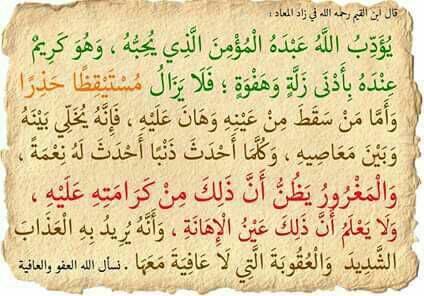 قال ابن القيم رحمه الله في زاد المعاد :
يُؤَدِّبُ اللَّهُ عَبْدَهُ الْمُؤْمِنَ الَّذِي يُحِبُّهُ ، وَهُوَ كَرِيمٌ
عِنْدَهُ بِأَدْنَى زَلَّةٍ وَهَفْوَةٍ ؛ فَلَا يَزَالُ مُسْتَيْقِظًا حَذِرًا
وَأَمَّا مَنْ سَقَطَ مِنْ عَيْنِهِ وَهَانَ عَلَيْهِ ، فَإِنَّهُ يُخَلِّي بَيْنَهُ
وَبَيْنَ مَعَاصِيهِ ، وَكُلَّمَا أَحْدَثَ ذَنْبًا أَحْدَثَ لَهُ نِعْمَةً ،
وَالْمَغْرُورُ يَظُنُّ أَنَّ ذَلِكَ مِنْ كَرَامَتِهِ عَلَيْهِ ،
وَلَا يَعْلَمُ أَنَّ ذَلِكَ عَيْنُ الْإِهَانَةِ ، وَأَنَّهُ يُرِيدُ بِهِ الْعَذَابَ
الشَّدِيدَ وَالْعُقُوبَةَ الَّتِي لَا عَافِيَةَ مَعَهَا . نسأل الله العفو والعافية